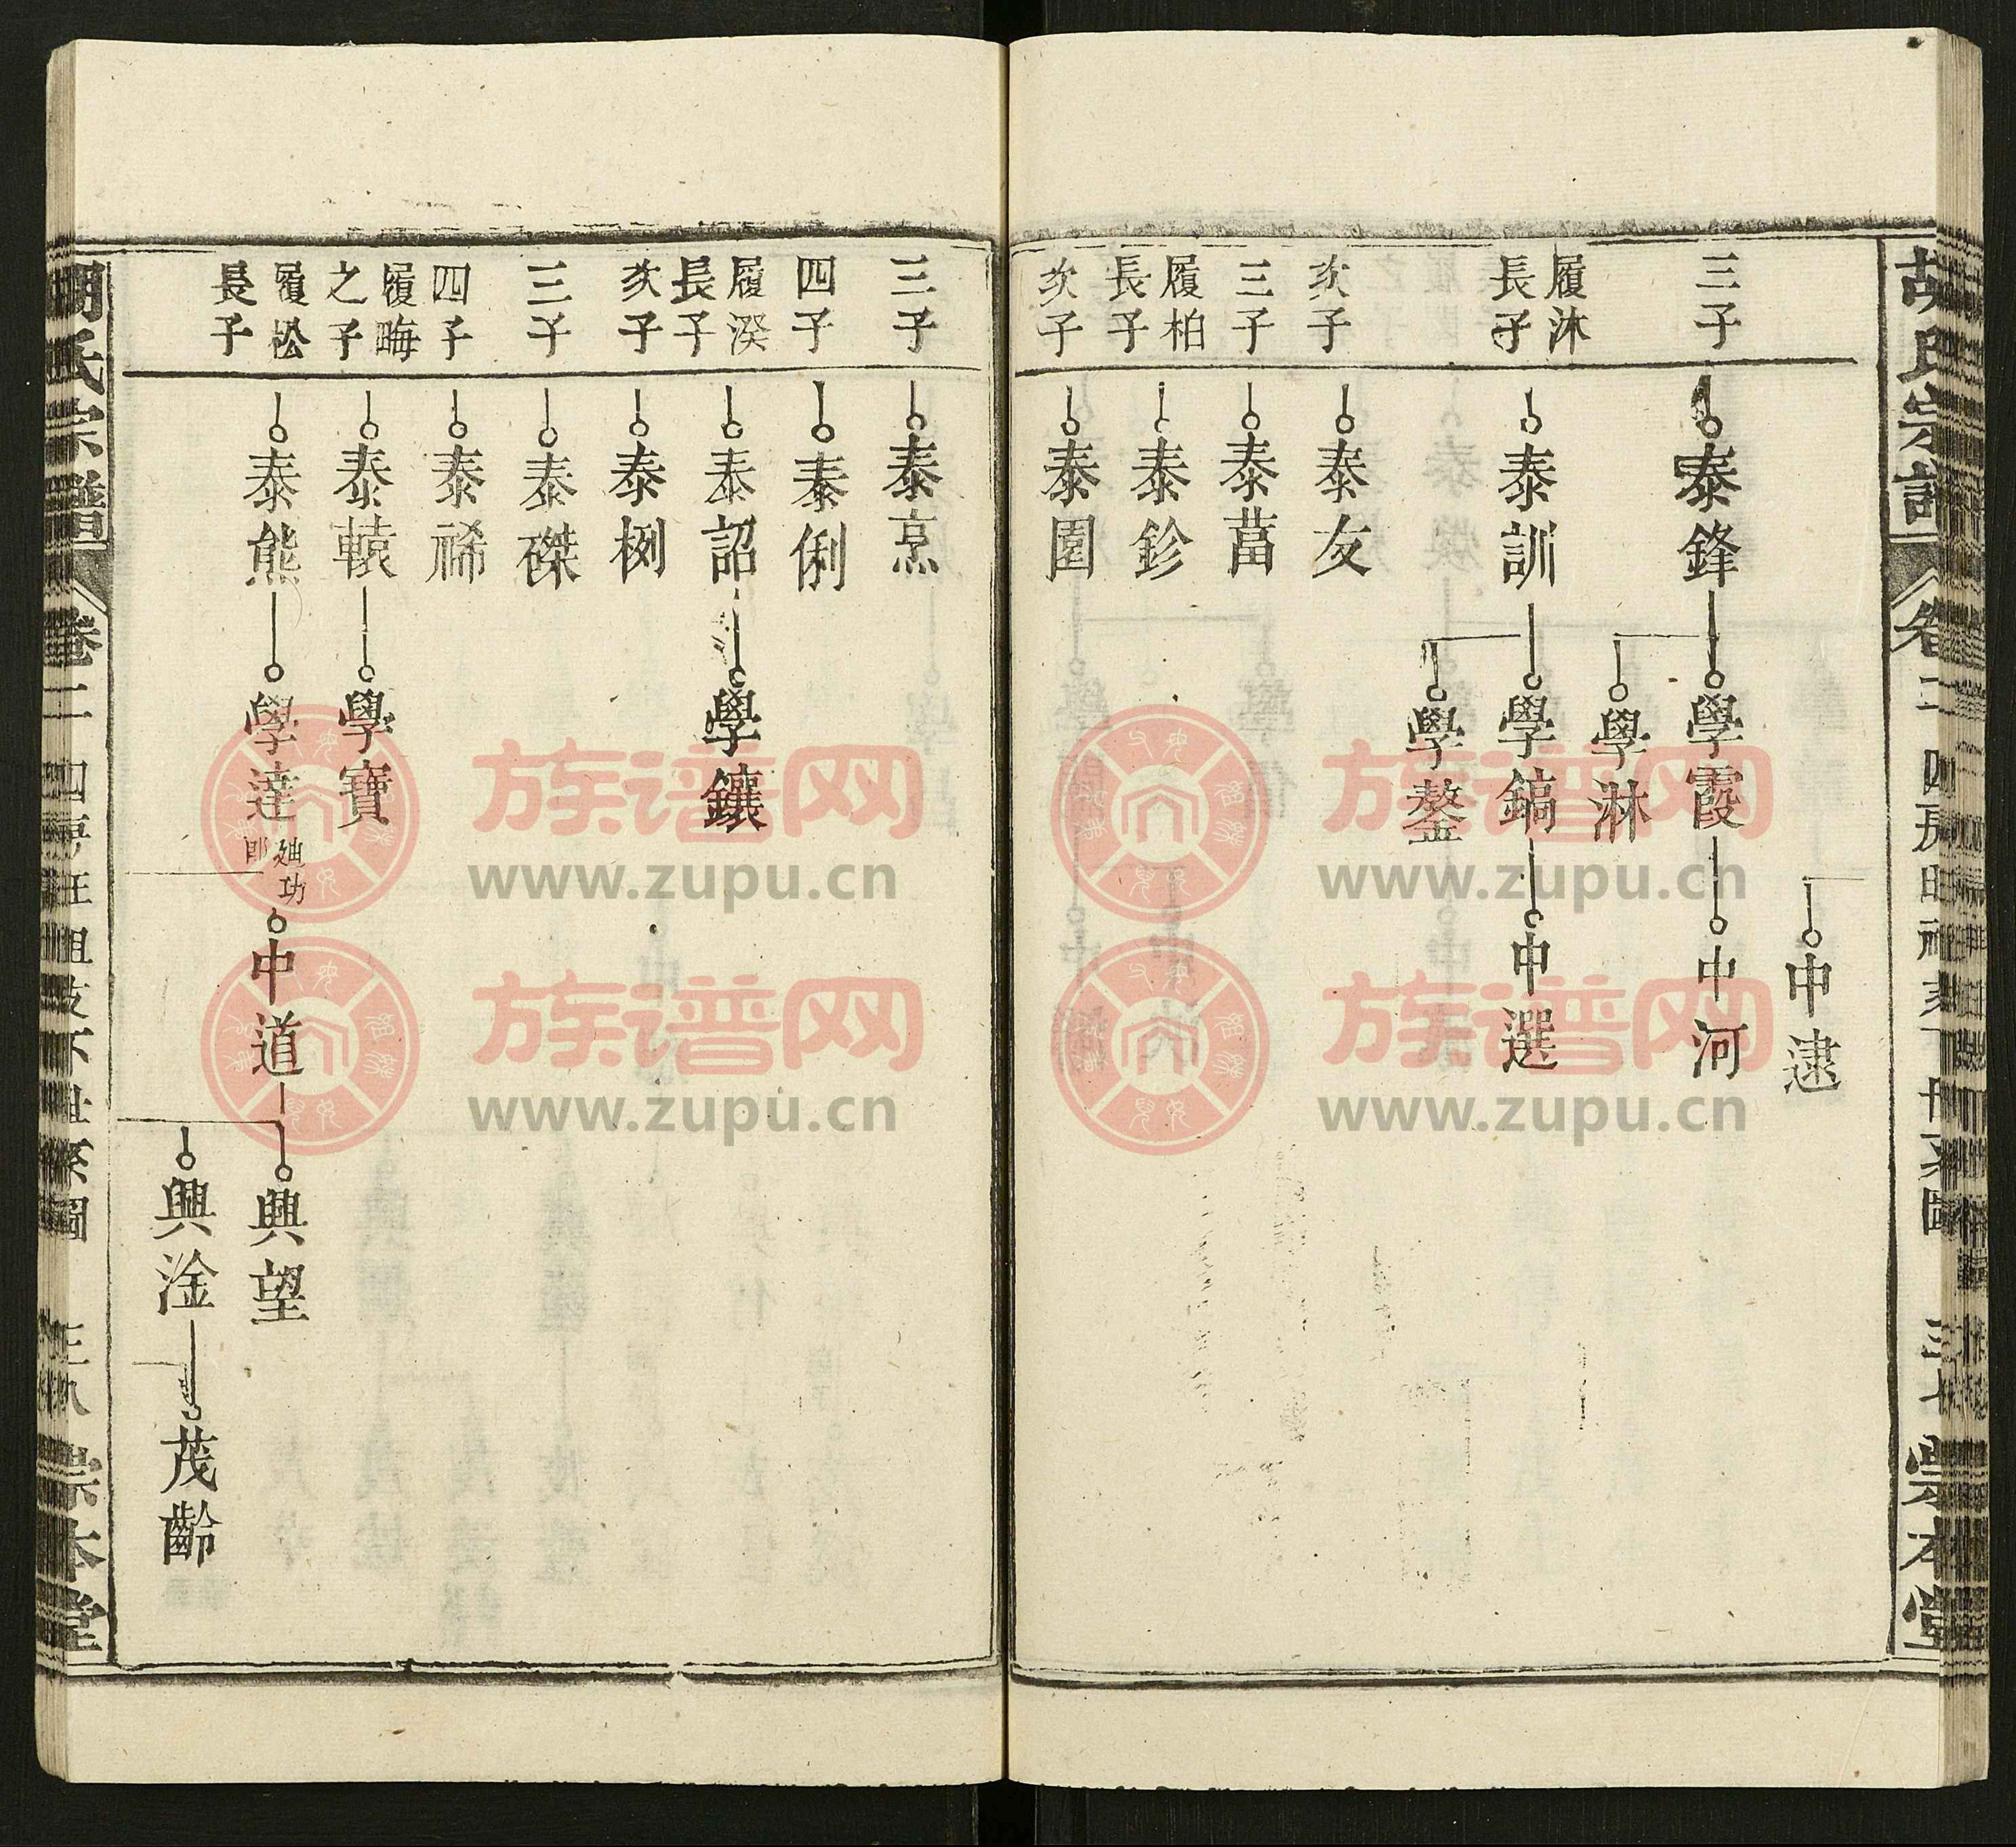 胡氏宗譜 卷二 四房旺祖支下世系圖 三七 崇本堂
中逮
三子
泰鋒
學霞
中河
學淋
履沐
長子
泰訓
學鎬
中選
學鏊
次子
泰友
三子
泰菖
履柏
長子
泰鉁
次子
泰園
三子
泰烹
四子
泰俐
履湥
長子
泰詔
學鑲
次子
泰栵
三子
泰磔
四子
泰禘
履晦
之子
泰轅
學寶
履松
長子
泰熊
學達
廸功
郎
中道
興望
興淦
茂齡
胡氏宗譜 卷二 四房旺祖支下世系圖 三八 崇本堂
族谱网
www.zupu.cn
族谱网
www.zupu.cn
族谱网
www.zupu.cn
族谱网
www.zupu.cn